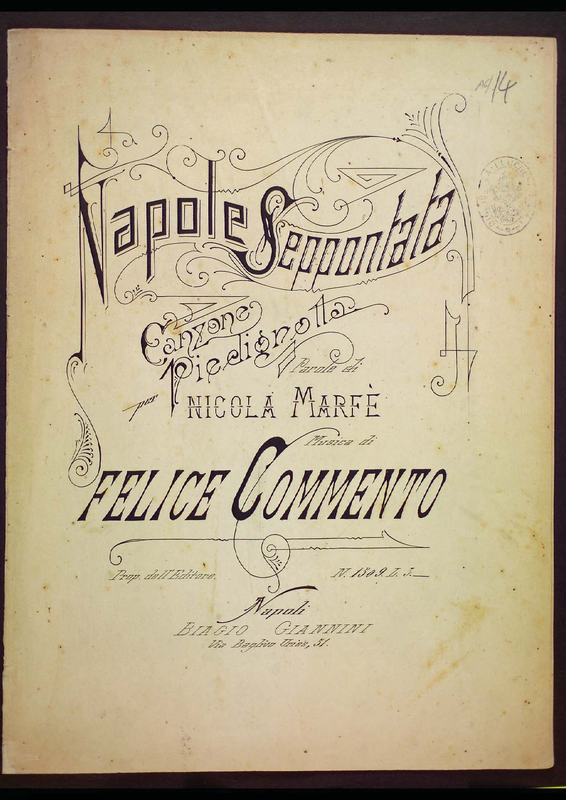 14
Napole Seppontata
Canzone
per Piedigrotta
Parole di
NICOLA MARFÈ
Musica di
FELICE COMMENTO
Prop. dell'Editore. N. 1809. L. 3.—
Napoli
BIAGIO GIANNINI
Via Baglivo Uries, 51.